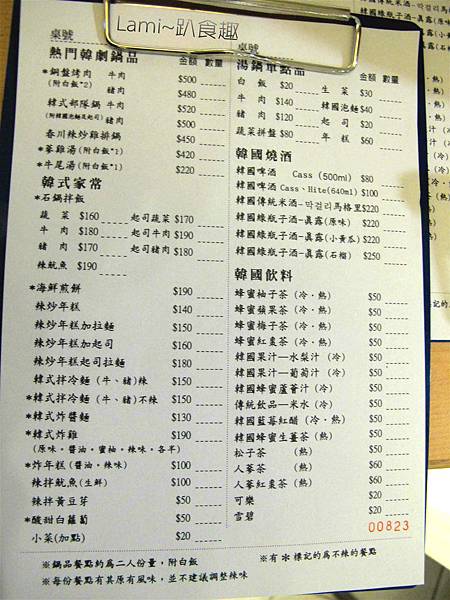 Lami~趴食趣
桌號
熱門韓劇鍋品 金額 數量
*銅盤烤肉 牛肉 $500
(附白飯*2) 豬肉 $480
韓式部隊鍋 牛肉 $520
(附韓國泡麵及起司) 豬肉 $500
春川辣炒雞排鍋 $450
*蔘雞湯(附白飯*1) $420
*牛尾湯(附白飯*1) $220
韓式家常
*石鍋拌飯
蔬菜 $160 起司蔬菜 $170
牛肉 $180 起司牛肉 $190
豬肉 $170 起司豬肉 $180
辣魷魚 $190
*海鮮煎餅 $190
辣炒年糕 $140
辣炒年糕加拉麵 $150
辣炒年糕加起司 $160
辣炒年糕起司拉麵 $180
韓式拌冷麵 (牛、豬)辣 $150
*韓式拌冷麵 (牛、豬)不辣 $150
*韓式炸醬麵 $130
*韓式炸雞 $190
(原味・醬油・蜜柚・辣味・各半)
*炸年糕(醬油・辣味) $100
辣拌魷魚(生鮮) $100
辣拌黃豆芽 $50
*酸甜白蘿蔔 $50
小菜(加點) $20
桌號
湯鍋單點品 金額 數量
白飯 $20 生菜 $30
牛肉 $140 韓國泡麵 $40
豬肉 $120 起司 $20
蔬菜拼盤 $80 年糕 $60
韓國燒酒
韓國啤酒 Cass (500ml) $80
韓國啤酒 Cass、Hite(640ml) $100
韓國傳統米酒-막걸리馬格里 $220
韓國綠瓶子酒-真露(原味) $220
韓國綠瓶子酒-真露(小黃瓜) $220
韓國綠瓶子酒-真露(石榴) $250
韓國飲料
蜂蜜柚子茶 (冷・熱) $50
蜂蜜蘋果茶 (冷・熱) $50
蜂蜜梅子茶 (冷・熱) $50
蜂蜜紅棗茶 (冷・熱) $50
韓國果汁—水梨汁 (冷) $50
韓國果汁—葡萄汁 (冷) $50
韓國蜂蜜蘆薈汁 (冷) $50
傳統飲品—米水 (冷) $50
韓國藍莓紅醋 (冷・熱) $50
韓國蜂蜜生薑茶 (熱) $50
松子茶 (熱) $50
人蔘茶 (熱) $60
人蔘紅棗茶 (熱) $60
可樂 $20
雪碧 $20
00823
※鍋品餐點約為二人份量,附白飯 ※有*標記的為不辣的餐點
※每份餐點有其原有風味,並不建議調整辣味